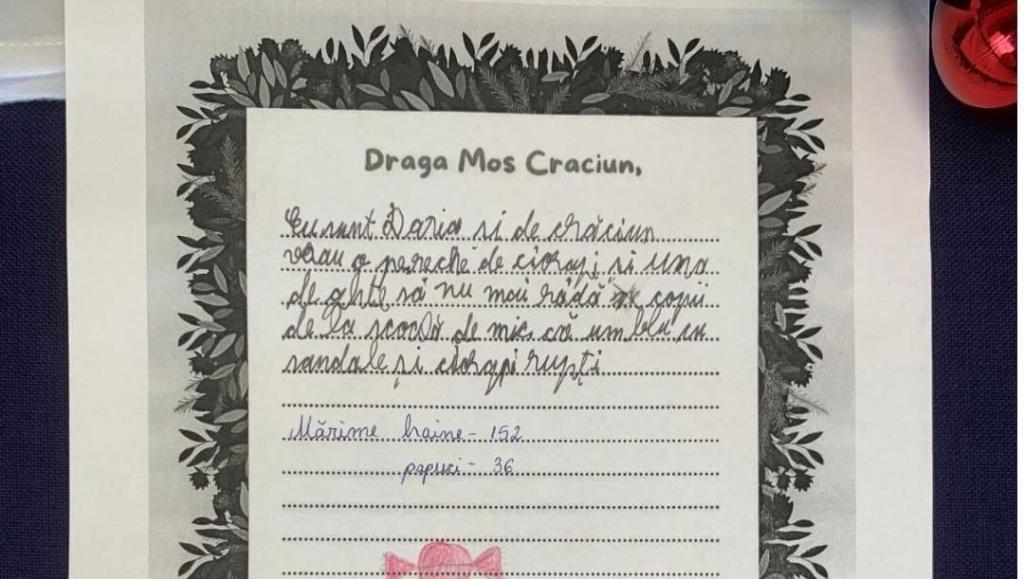 Draga Mos Craciun,
Eu sunt Daria si de crăciun
vreau o pereche de ciorapi si una
de ghte să nu mai râdă copii
de la scoală de mine că umblu cu
sandale și ciorapi rupți
Mărime haine - 152
papuci - 36